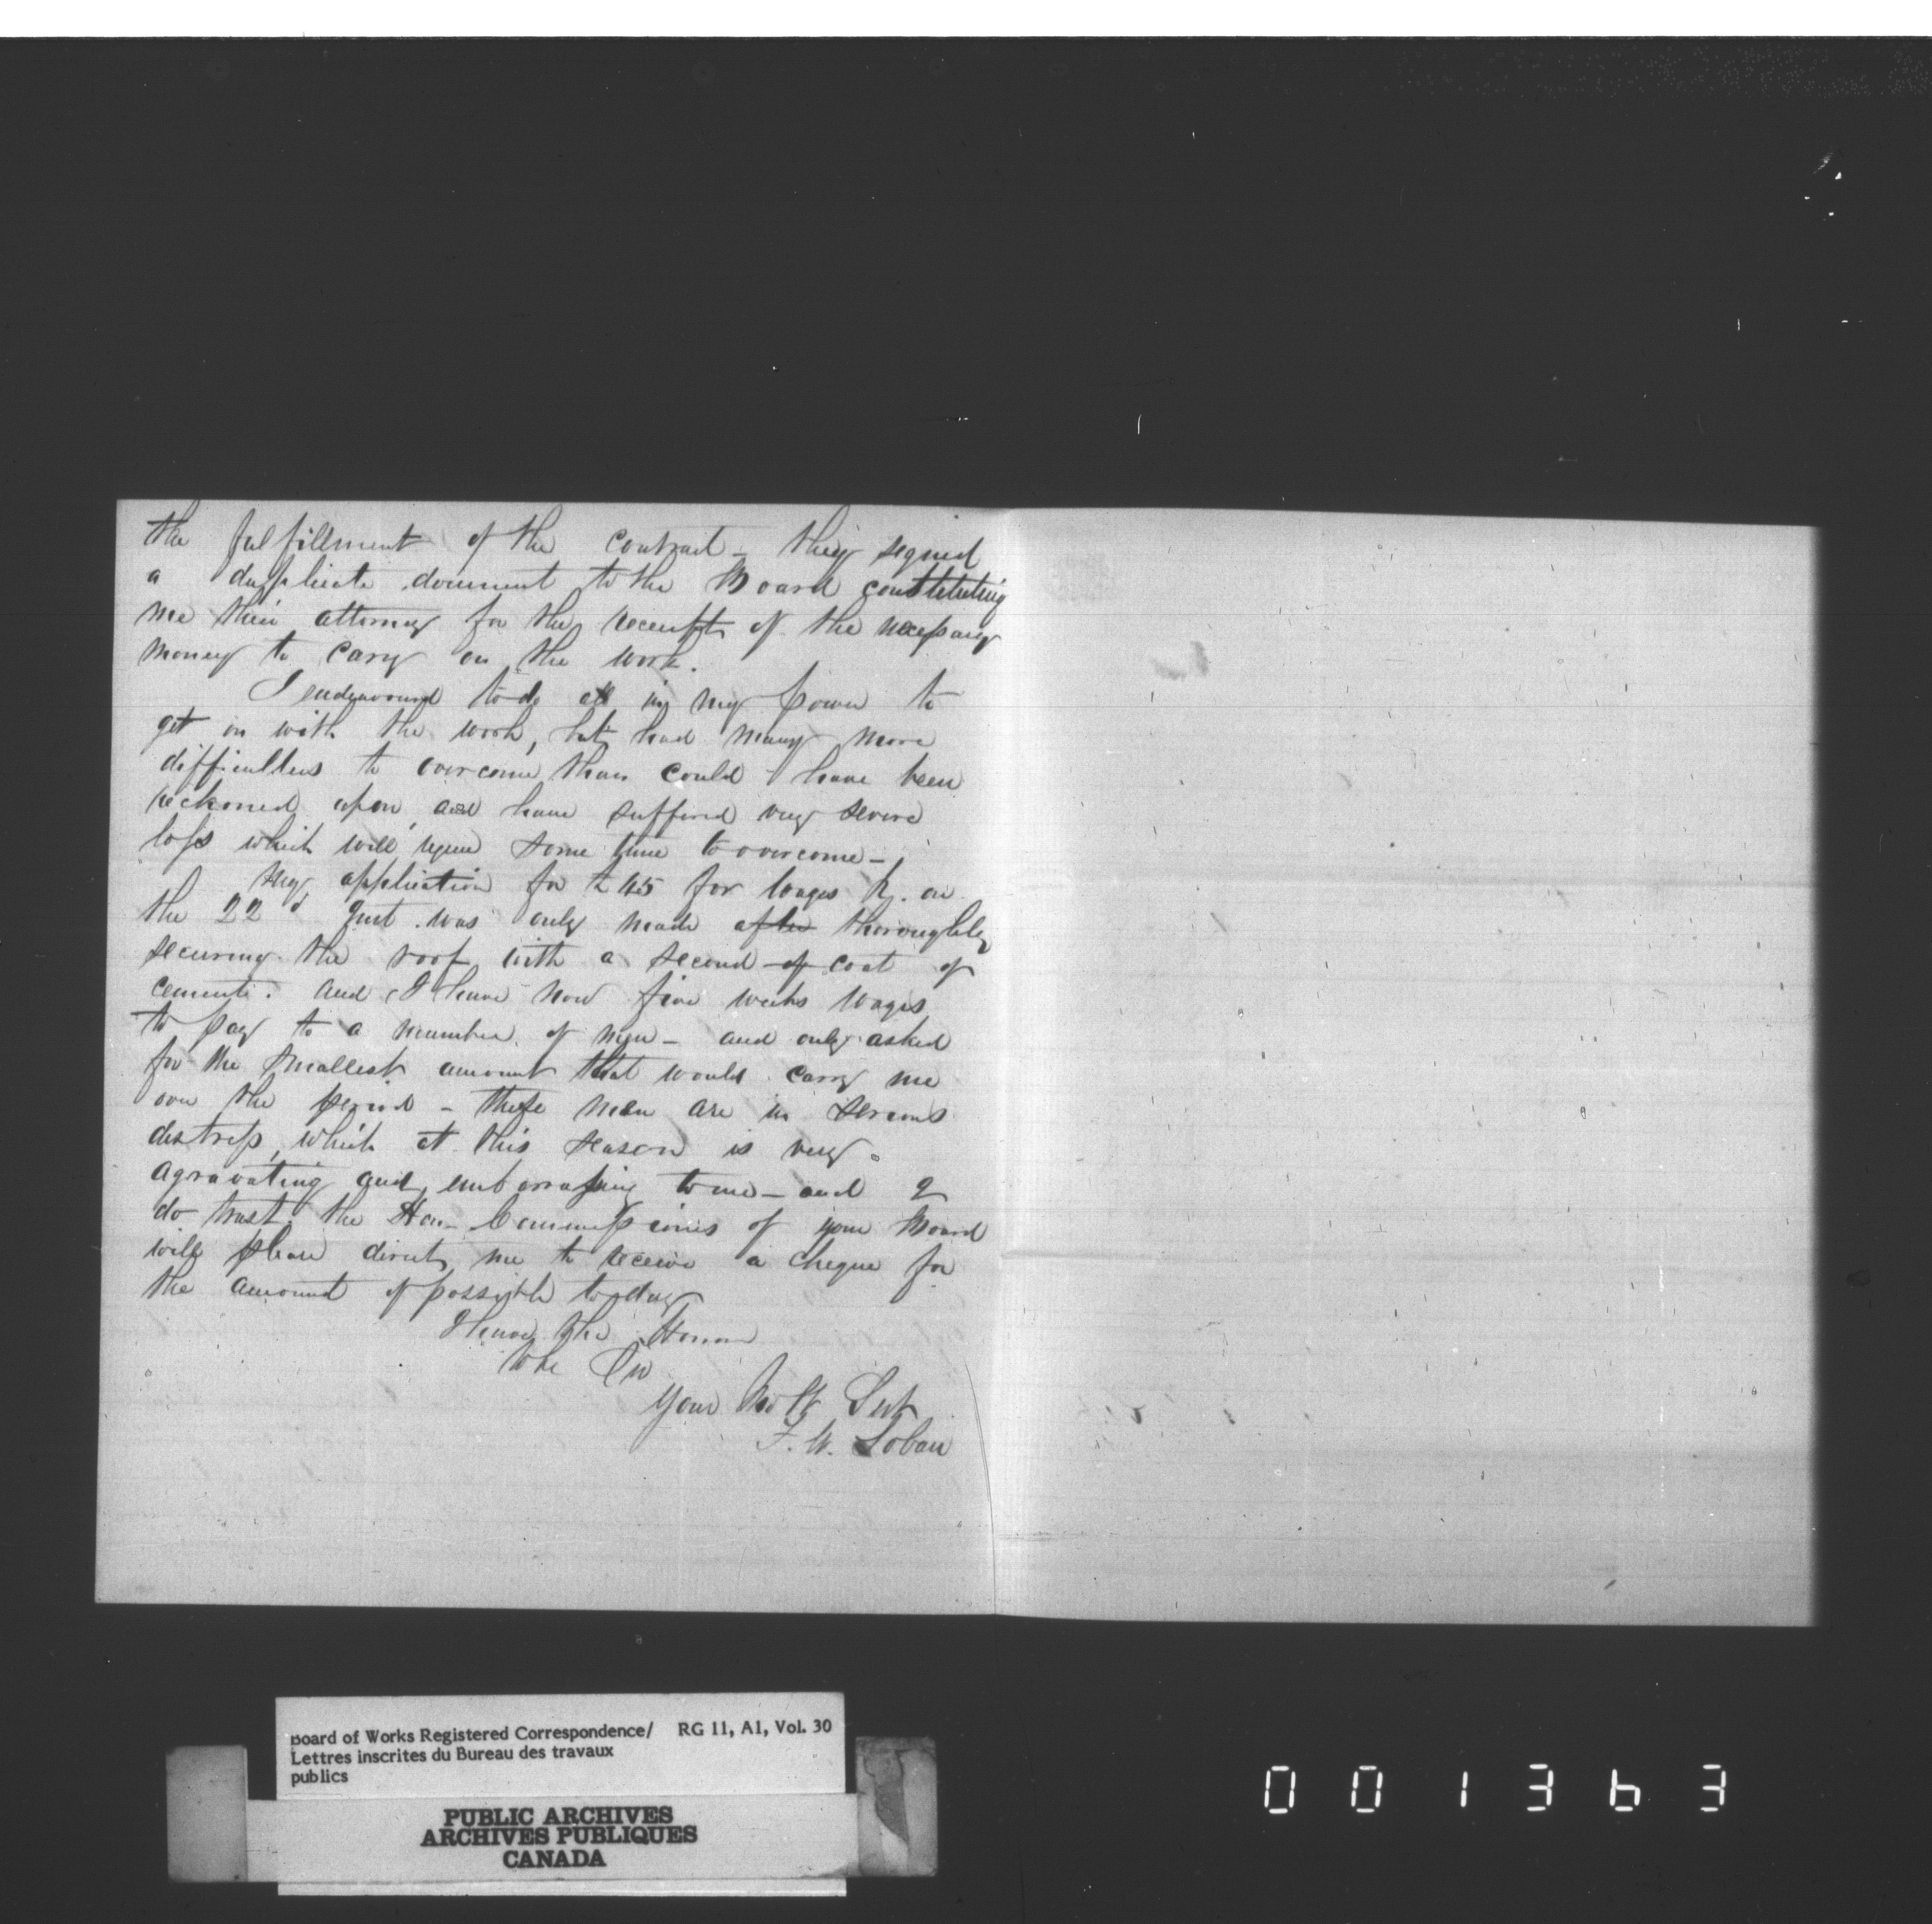 the fulfillment of the contract - they signed
a duplicate document to the Board constituting
me their attorney for the receipt of the necessary
money to carry on the work.
I endeavoured to do all in my power to
get on with the work, but had many more
difficulties to overcome than could have been
reckoned upon, and have suffered very severe
loss which will require some time to overcome -
My application for £45 for wages &. on
the 22d Inst. was only made after thoroughly
securing the roof with a second of coat of
cement. and I have now five weeks wages
to pay to a number of men - and only asked
for the smallest amount that would carry me
over the period - these men are in serious
distress, which at this season is very
agravating and embarrassing to me - and I
do trust the Hon. Commissioners of your Board
will please direct me to receive a cheque for
the amount if possible to day
I have the Honor
to be Sir
Your Mo St Sert
F. W. Loban
Board of Works Registered Correspondence/ RG 11, A1, Vol. 30
Lettres inscrites du Bureau des travaux
publics
PUBLIC ARCHIVES
ARCHIVES PUBLIQUES
CANADA
001363